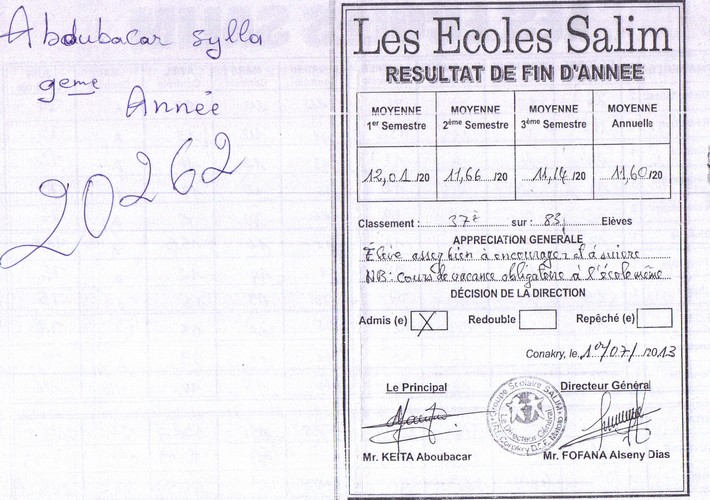 Abdoubacar sylla
9eme
Année
20262
Les Ecoles Salim
RESULTAT DE FIN D'ANNEE
MOYENNE 1er Semestre
MOYENNE 2ème Semestre
MOYENNE 3ème Semestre
MOYENNE Annuelle
12,01 /20
11,66 /20
11,14 /20
11,60 /20
Classement : 37è sur : 83 Elèves
APPRECIATION GENERALE
Élève assez bien à encourager et à suivre
NB: cours de vacance obligatoire à l'école même
DÉCISION DE LA DIRECTION
Admis (e) X Redouble Repêché (e)
Conakry, le 1er/07/ /2013
Le Principal
Directeur Général
Groupe Scolaire SALIM
Le Directeur Général
Mr. KEITA Aboubacar
Mr. FOFANA Alseny Dias